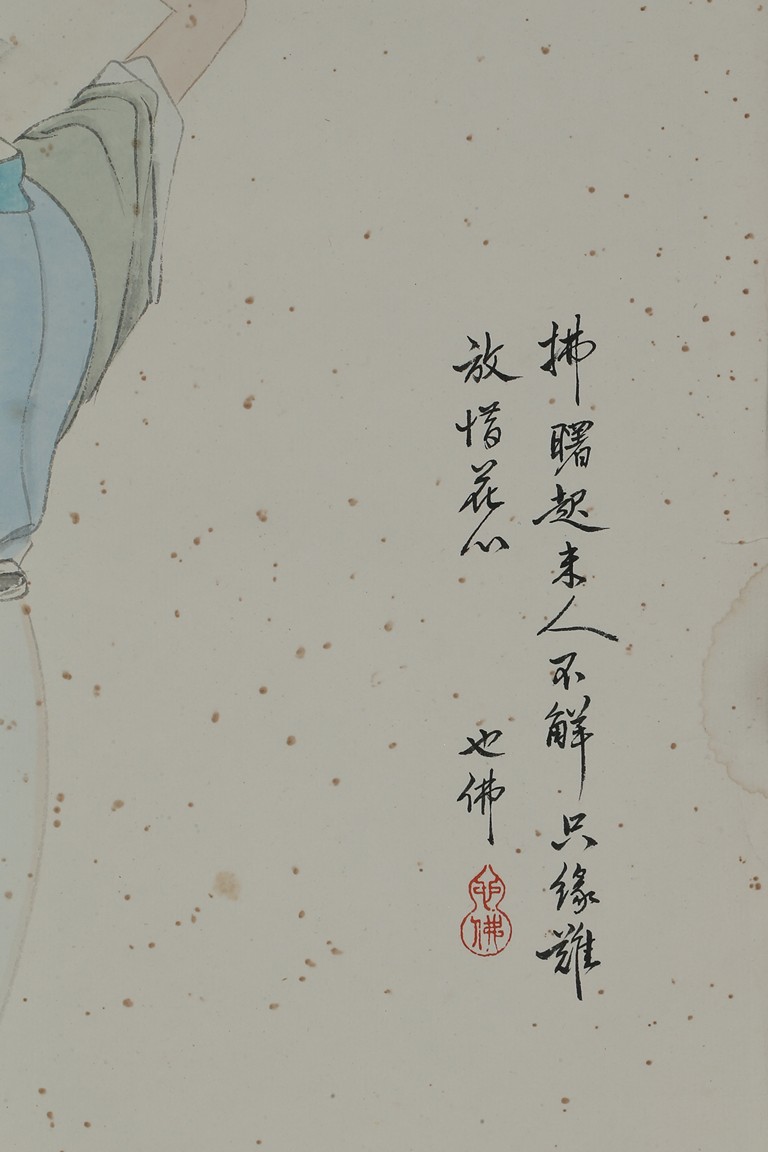 拂曙起来人不解只缘难
放惜花心
也佛
也佛